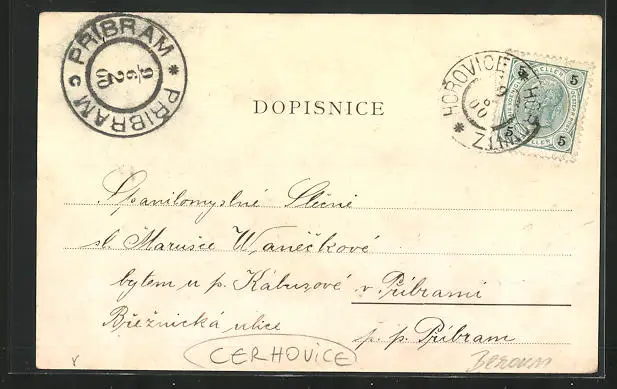 PŘIBRAM * PŘIBRAM C
9
6
2
00
HOŘOVICE * HOŘOWITZ *
9
6
00
5 5
HELLER
5 5
DOPISNICE
Spanilomyslné Slečně
sl. Marušce Waněčkové
bytem u p. Kábusové v Příbrami
Březnická ulice p. p. Příbram
CERHOVICE Beroun